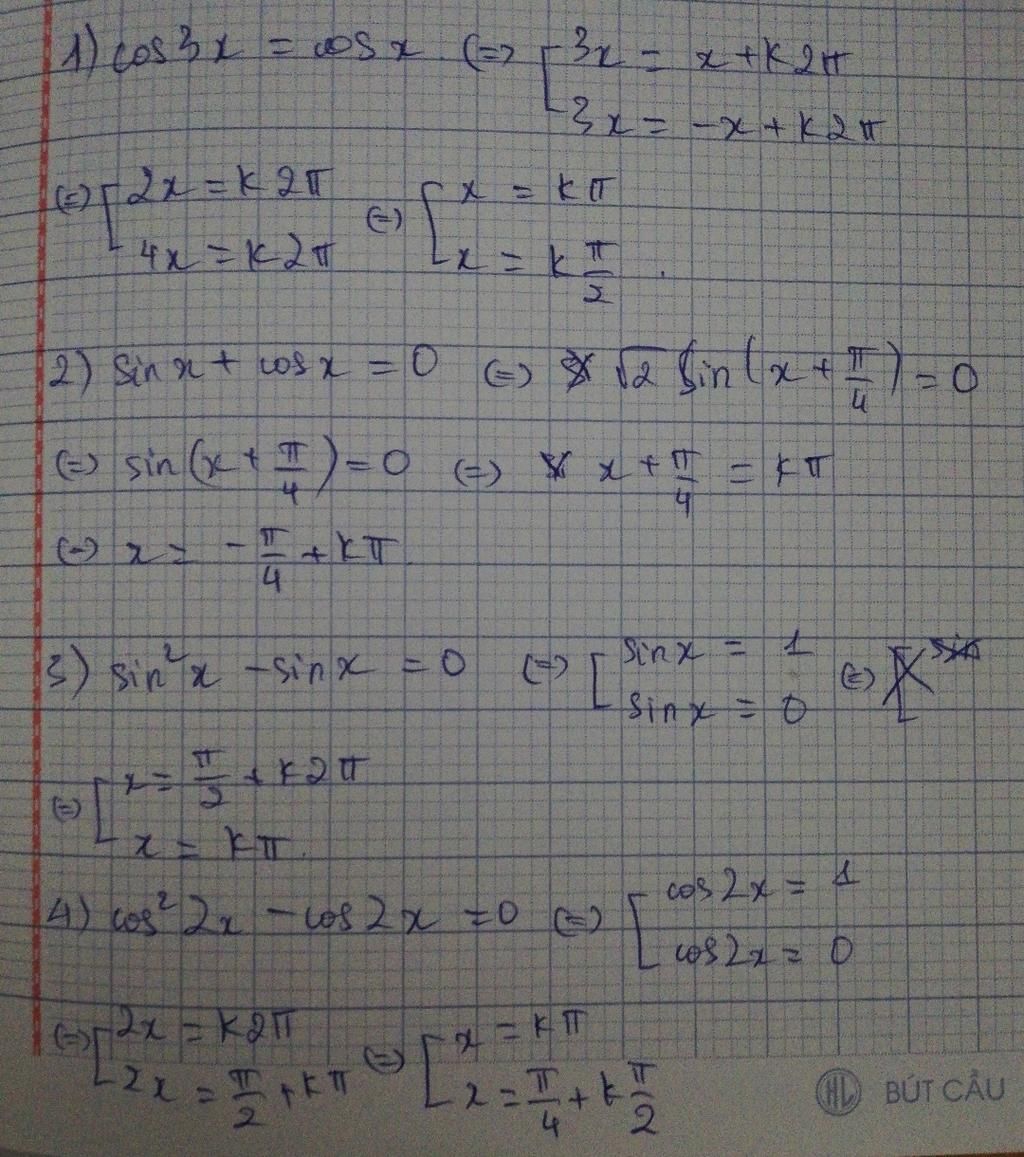 1) cos3x = cosx (=) [ 3x = x + k2π
3x = -x + k2π
(=) [ 2x = k2π (=) [ x = kπ
4x = k2π x = k π/2 .
2) sinx + cosx = 0 (=) √2 sin(x + π/4) = 0
(=) sin(x + π/4) = 0 (=) x + π/4 = kπ
(=) x = - π/4 + kπ.
3) sin²x - sinx = 0 (=) [ sinx = 1 (=) [ sin
sinx = 0
(=) [ x = π/2 + k2π
x = kπ.
4) cos²2x - cos2x = 0 (=) [ cos2x = 1
cos2x = 0
(=) [ 2x = k2π (=) [ x = kπ
2x = π/2 + kπ x = π/4 + k π/2
HL BÚT CẦU